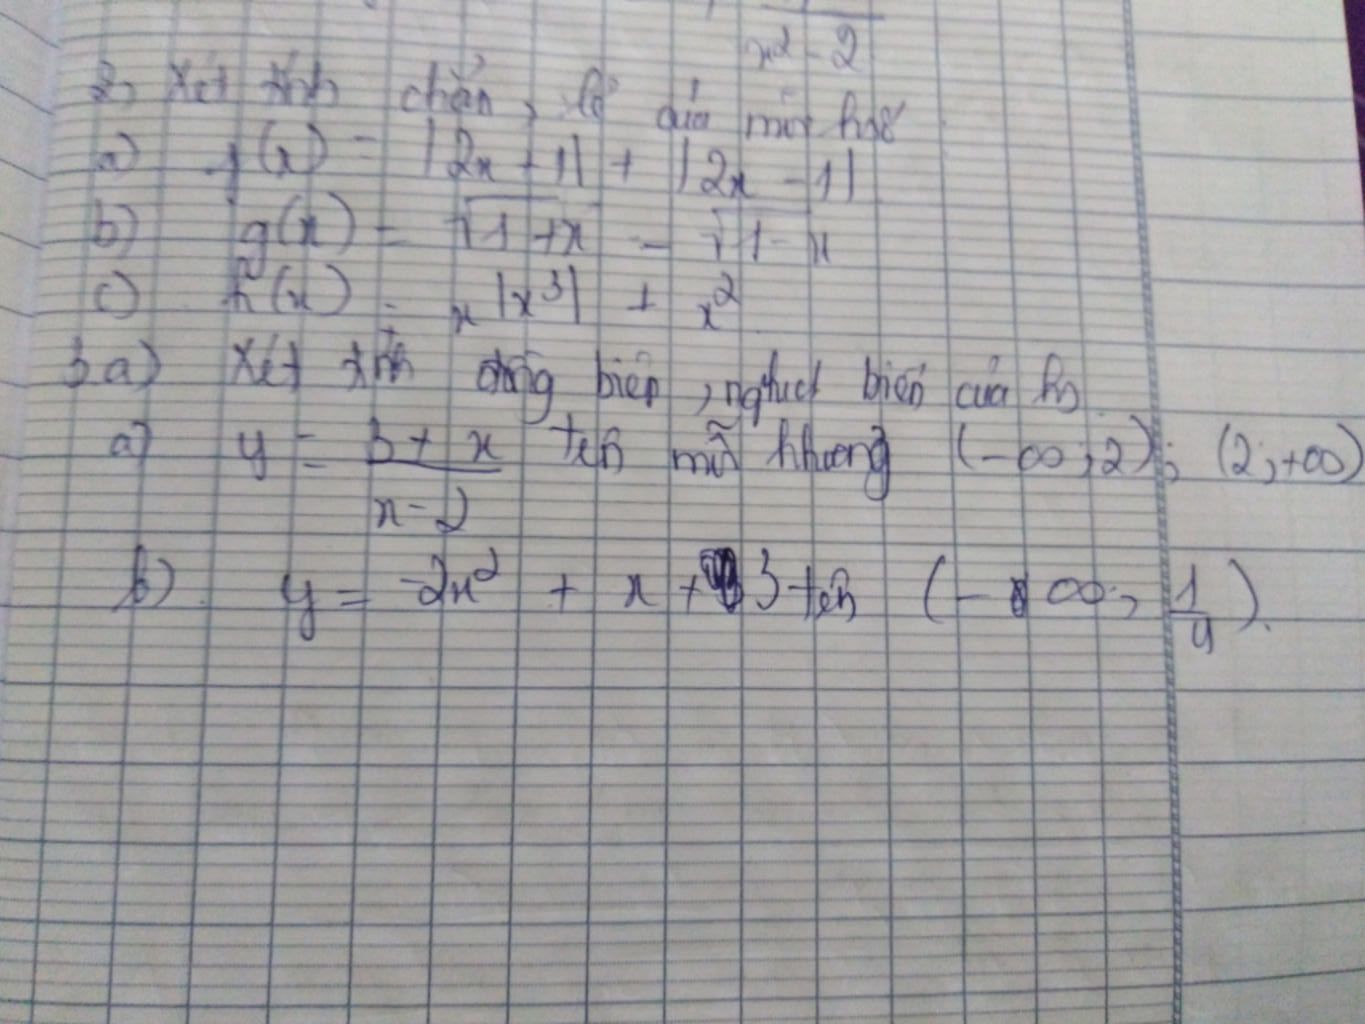 x² - 2
2, Xét tính chẵn, lẻ của mỗi hs
a) f(x) = |2x + 1| + |2x - 1|
b) g(x) = √1 + x - √1 - x
c) h(x) = x |x³| + x²
3.a) Xét tính đồng biến, nghịch biến của hs
a) y = 3 + x / x - 2 trên mỗi khoảng (-∞; 2); (2; +∞)
b) y = -2x² + x + 3 trên (-∞; 1/4).